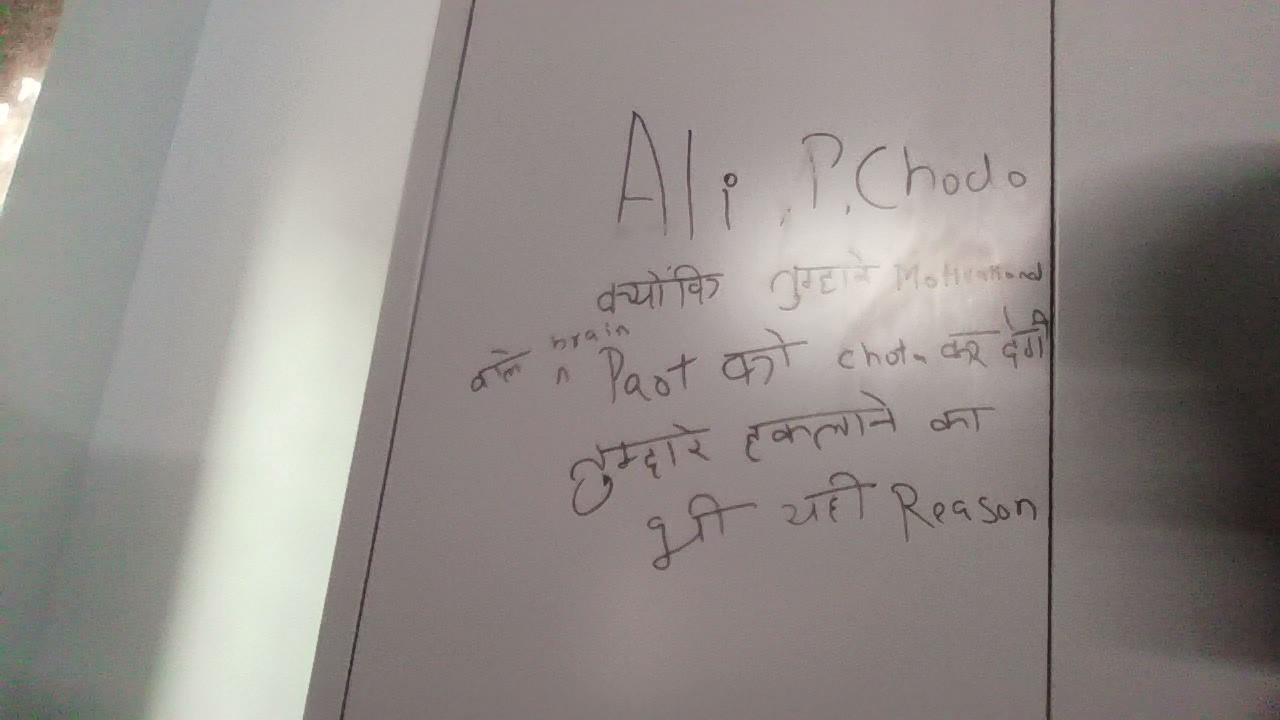 Ali .P. Chodo
क्योंकि तुम्हारे Motivational
वाले brain Part को chota कर देगी
तुम्हारे हकलाने का
भी यही Reason